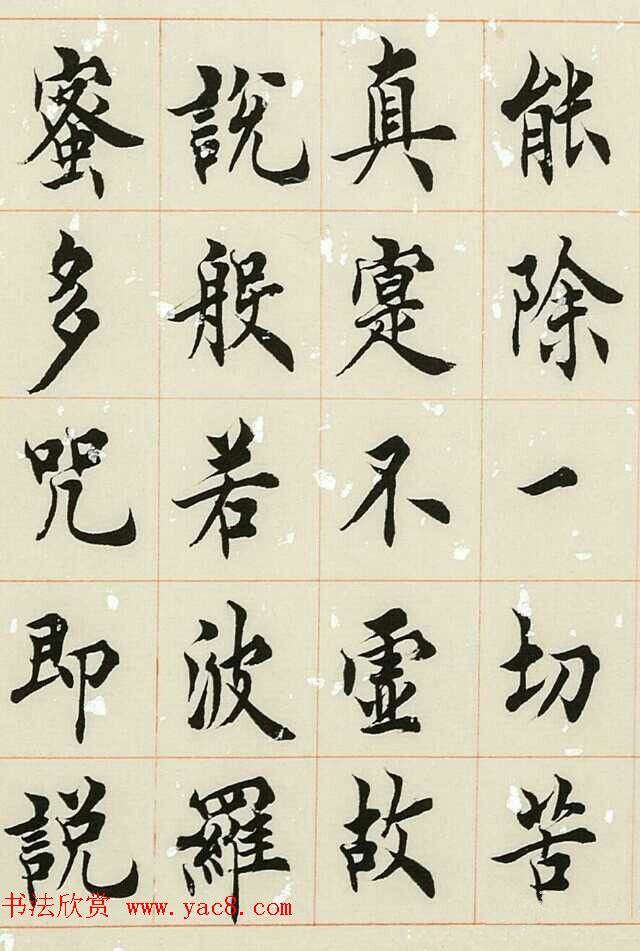 能除一切苦
真寔不虚故
說般若波羅
蜜多咒即說
书法欣赏 www.yac8.com